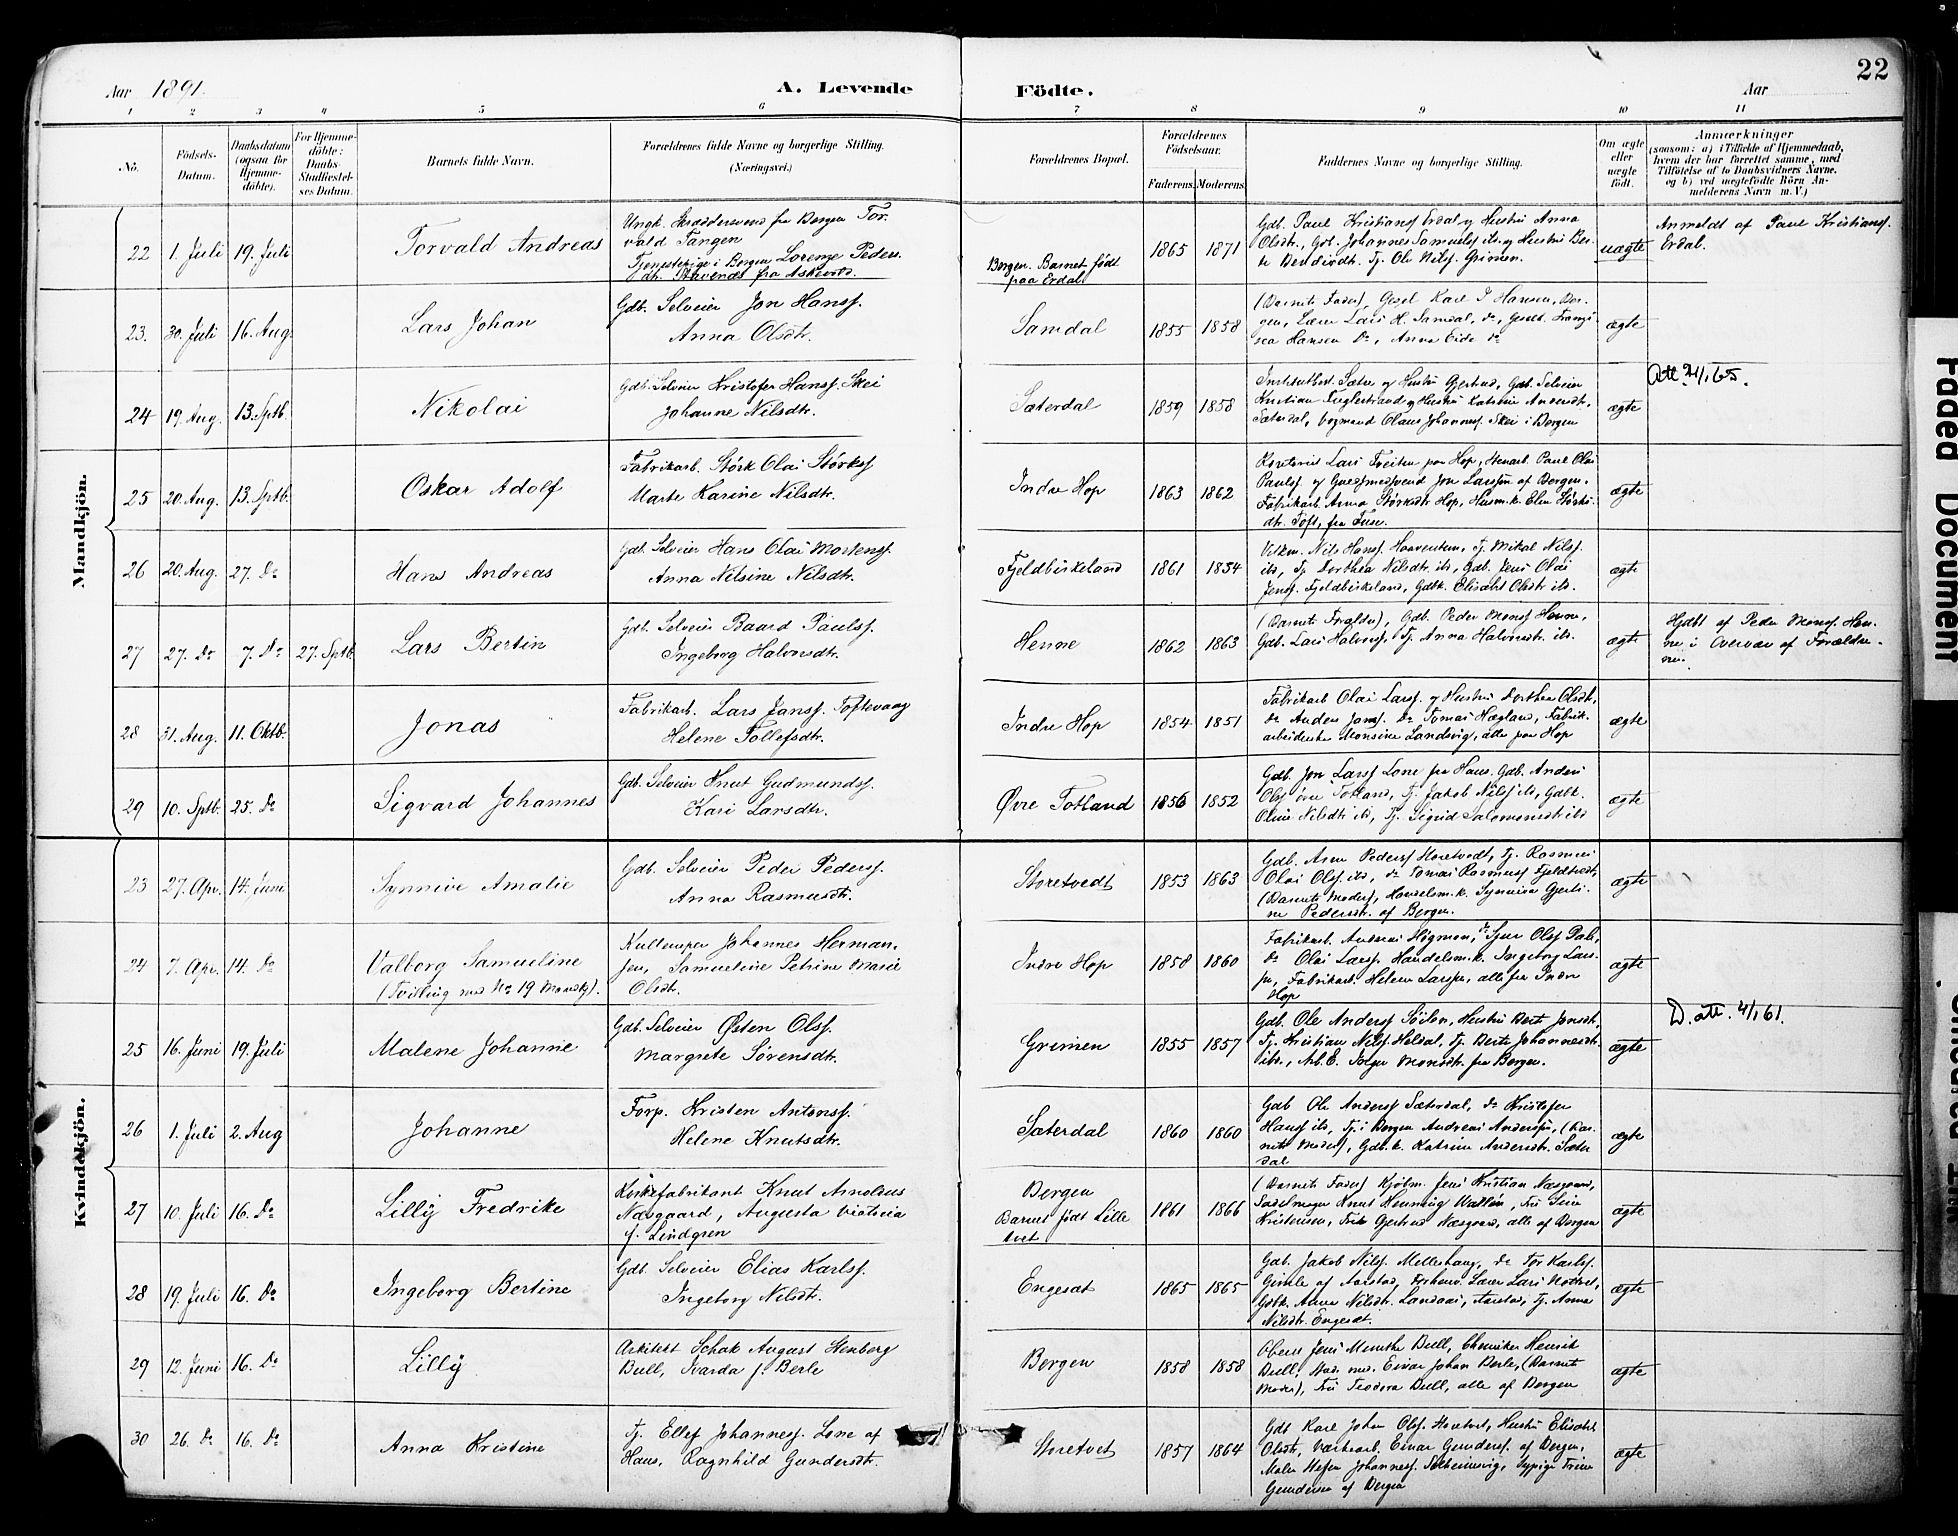 22
Aar 1891.
A. Levende Födte.
Aar
1 2 3 4 5 6 7 8 9 10 11
No.
Födsels-
Datum.
Daabsdatum
(ogsaa for
Hjemme-
döbte).
For Hjemme-
döbte:
Daabs-
Stadfæstel-
ses Datum.
Barnets fulde Navn.
Forældrenes fulde Navne og borgerlige Stilling.
(Næringsvei.)
Forældrenes Bopæl.
Forældrenes
Födselsaar.
Faderens. Moderens.
Faddernes Navne og borgerlige Stilling.
Om ægte
eller
uægte
födt.
Anmærkninger
(saasom: a) i Tilfælde af Hjemmedaab,
hvem der har forrettet samme, med
Tilföielse af to Daabsvidners Navne,
og b) ved uægtefödte Börn An-
melderens Navn m. V.)
Mandkjön.
22 1. Juli 19. Juli
Torvald Andreas
Ungk. Skræddersvend fra Bergen Tor-
vald Tangen
Tjenestepige i Bergen Lorenze Peders-
dt. Stavenes fra Askevold.
Bergen. Barnet født
paa Erdal
1865 1871
Gdb. Paul Kristianss Erdal og Hustru Anna
Olsdtr., Gdb. Johannes Samuelss ib. og Hustru Ber-
te Bendixdt. Tj. Ole Nilss. Grimen.
uægte
Anmeldt af Paul Kristianss.
Erdal.
23. 30. Juli 16. Aug.
Lars Johan
Gdb. Selveier Jon Hanss.
Anna Olsdtr.
Samdal
1855 1858
(Barnets Fader), Gesel Karl J Hansen, Ber-
gen, Lærer Lars H. Samdal, do, Geselk. Franzi-
sca Hansen do, Anna Eide do
ægte
24 19. Aug. 13. Sptb.
Nikolai
Gdb. Selveier Kristofer Hanss. Skei
Johanne Nilsdtr.
Sæterdal
1859 1858
Sætre og Hustru Gjertrud, Gdb. Selveier
Kristian Fuglestrand og Hustru Katrine Andersdt.
Sæterdal, Vognmand Olaus Johanness. Skei i Bergen
ægte
Att. 21/1 65.
25 20. Aug. 13. Sptb.
Oskar Adolf
Fabrikarb. Størk Olai Størkss
Marte Karine Nilsdtr.
Indre Hop
1863 1862
Kontorist Lars Treiten paa Hop, Stenarb. Paul Olai
Paulss og Guldsmedsvend Jon Larssøn af Bergen.
Fabrikarb. Anna Størksdtr Hop, Husm.k. Elen Størks-
dtr. Toft, fra Fuse.
ægte
26 20. Aug. 27. Do
Hans Andreas
Gdb. Selveier Hans Olai Mortenss.
Anna Nilsine Nilsdtr.
Fjeldbirkeland
1861 1854
Nils Hanss. Haaventun, Tj. Mikal Nilss.
ib, Tj. Dorthea Nilsdtr. ib, Gdb. Jens Olai
Jenss. Fjeldbirkeland, Gdbk. Elisabet Olsdtr ib.
ægte
27 27. Do 7. Do 27. Sptb.
Lars Bertin
Gdb. Selveier Baard Paulss.
Ingeborg Halvorsdtr.
Henne
1862 1863
(Barnets Forældre), Gdb. Peder Monss Henne,
Gdb. Lars Halvorss. Tj. Anna Halvorsdtr. ib.
ægte
Hjdbt af Peder Monss. Hen-
ne i Overvær af Forældre-
ne.
28 31. Aug. 11. Oktb.
Jonas
Fabrikarb. Lars Janss. Toftevaag
Helene Tollefsdtr.
Indre Hop
1854 1851
Fabrikarb Olai Larss. og Hustru Dorthea Olsdt.,
do Anders Janss. do Tomas Hægland, Fabrik-
arbeiderske Monsine Landsvig, alle paa Hop
ægte
29 10. Sptb. 25. Do
Sigvard Johannes
Gdb. Selveier Knut Gudmundss.
Kari Larsdtr.
Øvre Totland
1856 1852
Gdb. Jon Larss Lone fra Haus. Gdb. Anders
Olss øvre Totland, Tj. Jakob Nilss ib, Gdbk.
Oline Nilsdtr ib, Tj. Sigrid Salomonsdt ib
ægte
Kvindekjön.
23 27. Apr. 14. Juni
Synnive Amalie
Gdb. Selveier Peder Pederss.
Anna Rasmusdtr.
Storetvedt
1853 1863
Gdb. Arne Pederss Storetvedt, Tj. Rasmus
Olai Olss. ib, do Tomas Rasmuss Fjeldtvedt,
(Barnets Moder), Handelsm.k. Synneva Gjerti-
ne Pedersdtr. af Bergen.
ægte
24 7. Apr. 14. Do
Valborg Samueline
(Tvilling med No 19 Mandkj).
Johannes Herman-
sen, Samueline Petrine Marie
Olsdt.
Indre Hop
1858 1860
Fabrikarb. Andreas Høgmon, do Sjur Olss
do Olai Larss. Handelsm.k. Ingeborg Lars-
sen, Fabrikarb. Helene Larssen, alle fra Indre
Hop
ægte
25 16. Juni 19. Juli
Malene Johanne
Gdb. Selveier Østen Olss.
Margrete Sørensdtr.
Grimen
1855 1857
Gdb. Ole Anderss Søilen, Hustru Berte Jonsdt.,
Tj. Kristian Nilss. Heldal, Tj. Berte Johannesdt.
ib., Arb.E. Monsdtr. fra Bergen.
ægte
D. att. 4/1 61.
26 1. Juli 2. Aug
Johanne
Forp. Kristen Antonss.
Helene Knutsdtr.
Sæterdal
1860 1860
Gdb Ole Anderss Sæterdal, do Kristofer
Hanss ib, Tj. i Bergen Andreas Anderssen, (Bar-
nets Moder), Gdb.k. Katrine Andersdt. Sæter
dal
ægte
27 10. Juli 16. Do
Lilly Fredrike
Knut Arnoldus
Næsgaard, Augusta Viktoria
f. Lindgren
Bergen
Barnet født Lille
tvet
1861 1866
(Barnets Fader) Kjøbm. Jens Kristian Næsgaard,
Sadelmager Knut Henning Wallén, Frk
Kristensen, Frk Gjertrud Næsgaard, alle af Bergen
ægte
28 19. Juli 16. Do
Ingeborg Bertine
Gdb. Selveier Elias Karlss.
Ingeborg Nilsdt.
Engesæt
1865 1865
Gdb. Jakob Nilss. Mellehaug, do Tor Karlss.
Gimle af Aarstad, Lærer Lars
Gdbk. Anna Nilsdt. Landaas, Aarstad, Tj. Anna
Nilsdtr. Engesæt.
ægte
29 12. Juni 16. Do
Lilly
Arkitekt Schak August Stenberg
Bull, Svarda f. Berle
Bergen
1858 1858
Oberst Jens Munthe Bull, Chemiker Henrik
Bull, Stud. med. Einar Johan Berle, (Barnets
Moder), Frk Teodora Bull, alle af Bergen
ægte
30 26. Do 16. Do
Anna Kristine
Tj. Ellef Johanness. Lone af
Haus, Ragnhild Gundersdtr.
Storetvet
1857 1864
Gdb Karl Johan Olss. Storetvet, Hustru Elisabet
Olsdt, Værkarb. Einar Gunderss. af Bergen,
Maler Johanness. Sypige Trine
Gundersen af Bergen
ægte
Faded Document